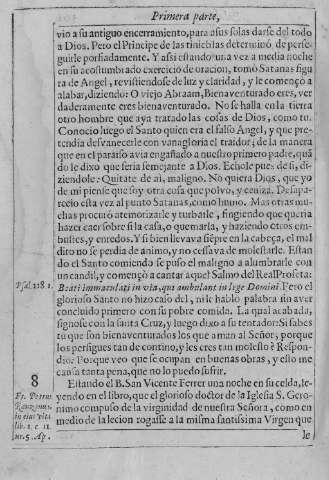 Primera parte,
vio a su antiguo encerramiento, para a sus solas darse del todo
a Dios. Pero el Principe de las tinieblas determinò de perse-
guirle porfiadamente. Y assi estando una vez a media noche
en su acostumbrado exercicio de oracion, tomò Satanas figu
ra de Angel, revistiendose de luz y claridad, y le començò a
alabar, diziendo: O viejo Abraam, Bienaventurado eres, ver
daderamente eres bienaventurado. No se halla en la tierra
otro hombre que aya tratado las cosas de Dios, como tu.
Conocio luego el Santo quien era el falso Angel, y que pre-
tendia desvanecerle con vanagloria el traidor, de la manera
que en el paraiso avia engañado a nuestro primero padre, quã
do le dixo que seria semejante a Dios. Echole pues de si, di-
ziendole: Quitate de ai, maligno. No quiera Dios, que yo
de mi piense que soy otra cosa que polvo, y ceniza. Desapa-
recio esta vez al punto Satanas, como humo. Mas otras mu-
chas procurò atemorizarle y turbarle, fingiendo que queria
hazer caer sobre si la casa, o quemarla, y haziendo otros em-
bustes, y enredos. Y si bien llevava siẽpre en la cabeça, el mal
dito no se perdia de animo, y no cessava de molestarle. Estan
do el Santo comiendo se puso el maligno a alumbrarle con
un candil, y començò a cantar aquel Salmo del Real Profeta:
Psal. 118 1. Beati immaculati in via, qui ambulant in lege Domini. Pero el
glorioso Santo no hizo caso del, ni le hablo palabra sin aver
concluido primero con su pobre comida. La qual acabada,
signose con la santa Cruz, y luego dixo a su tentador: Si sabes
tu que son bienaventurados los que aman al Señor, porque
los persigues tan de contino, y les eres tan molesto? Respon-
dio: Porque veo que se ocupan en buenas obras, y esto me
causa tanta pena, que no lo puedo sufrir.
8 Estando el B. San Vicente Ferrer una noche en su celda, le-
Fr. Petrus yendo en el libro, que el glorioso doctor de la Iglesia S. Gero-
Ranzanus. nimo compuso de la virginidad de nuestra Señora, como en
in eius vita medio de la lecion rogasse a la misma santissima Virgen que
lib. 1. c. 11.
nr. 5. Ap. le